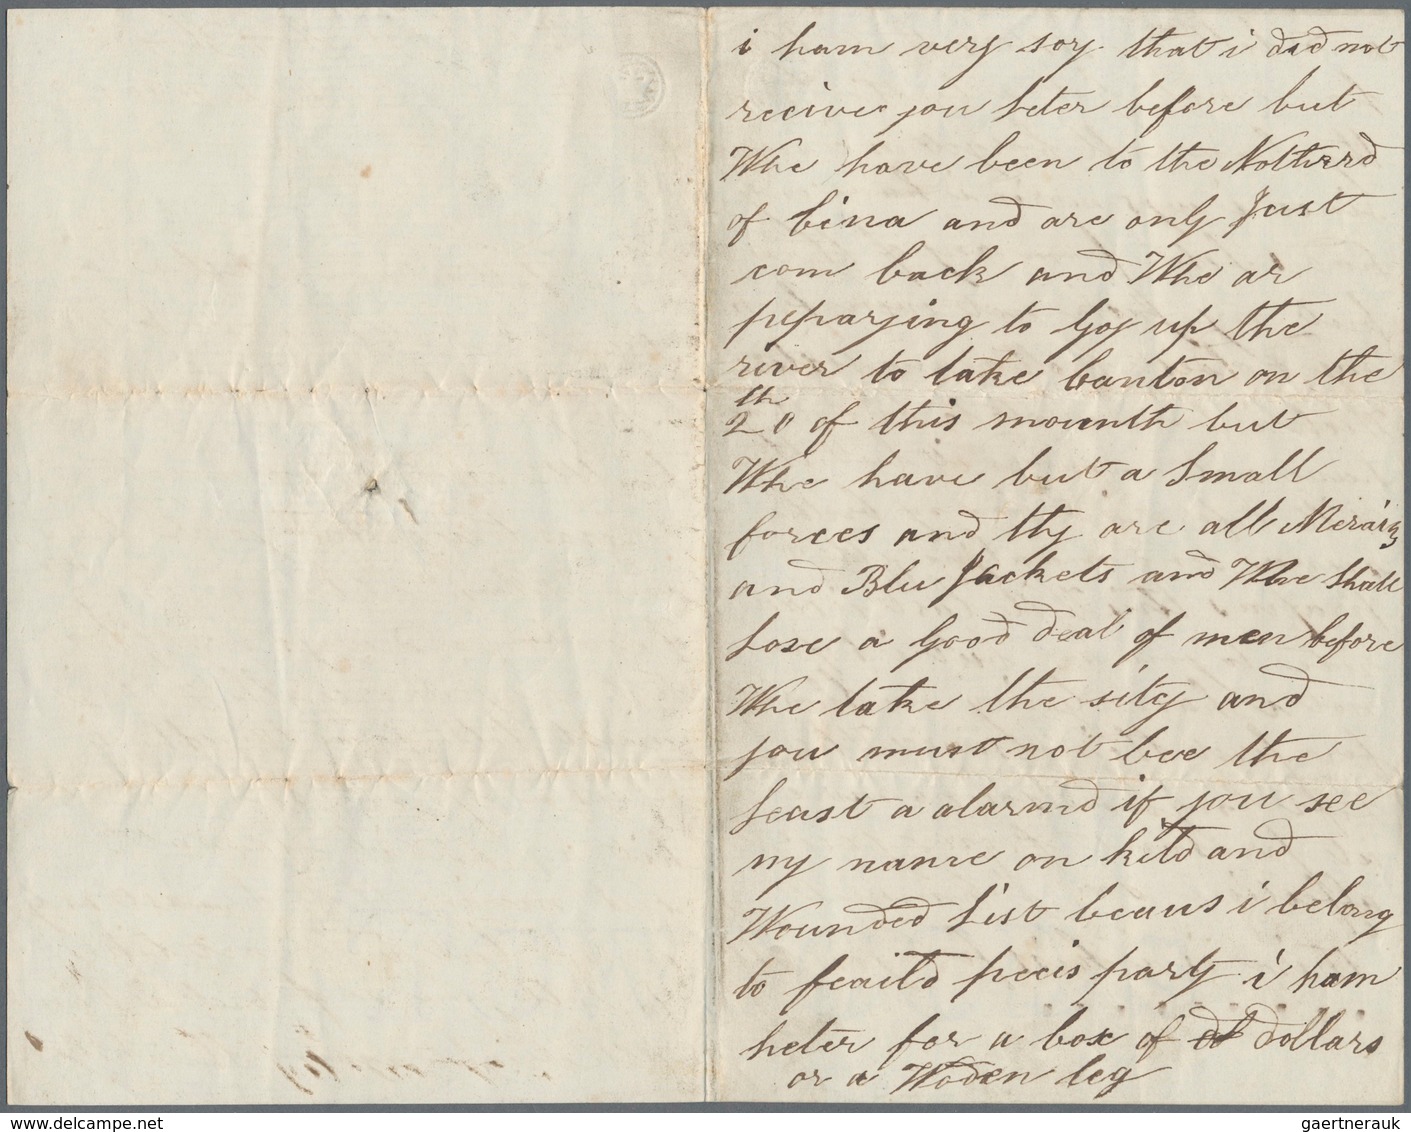 i ham very soy that i did not
recive you leter before but
Whe have been to the Notherd
of Cina and are only Just
com back and Whe ar
peparying to Goy up the
river to take Canton on the
20th of this mounth but
Whe have but a Small
forces and thy are all
and Blu Jackets and Whe Shall
Lose a Good deal of men before
Whe take the sity and
you must not bee the
Least a alarmd if you see
my name on kild and
Wounded List becaus i belong
to feaild peeis party i ham
heter for a box of dollars
or a Woden leg
gaertnerauk